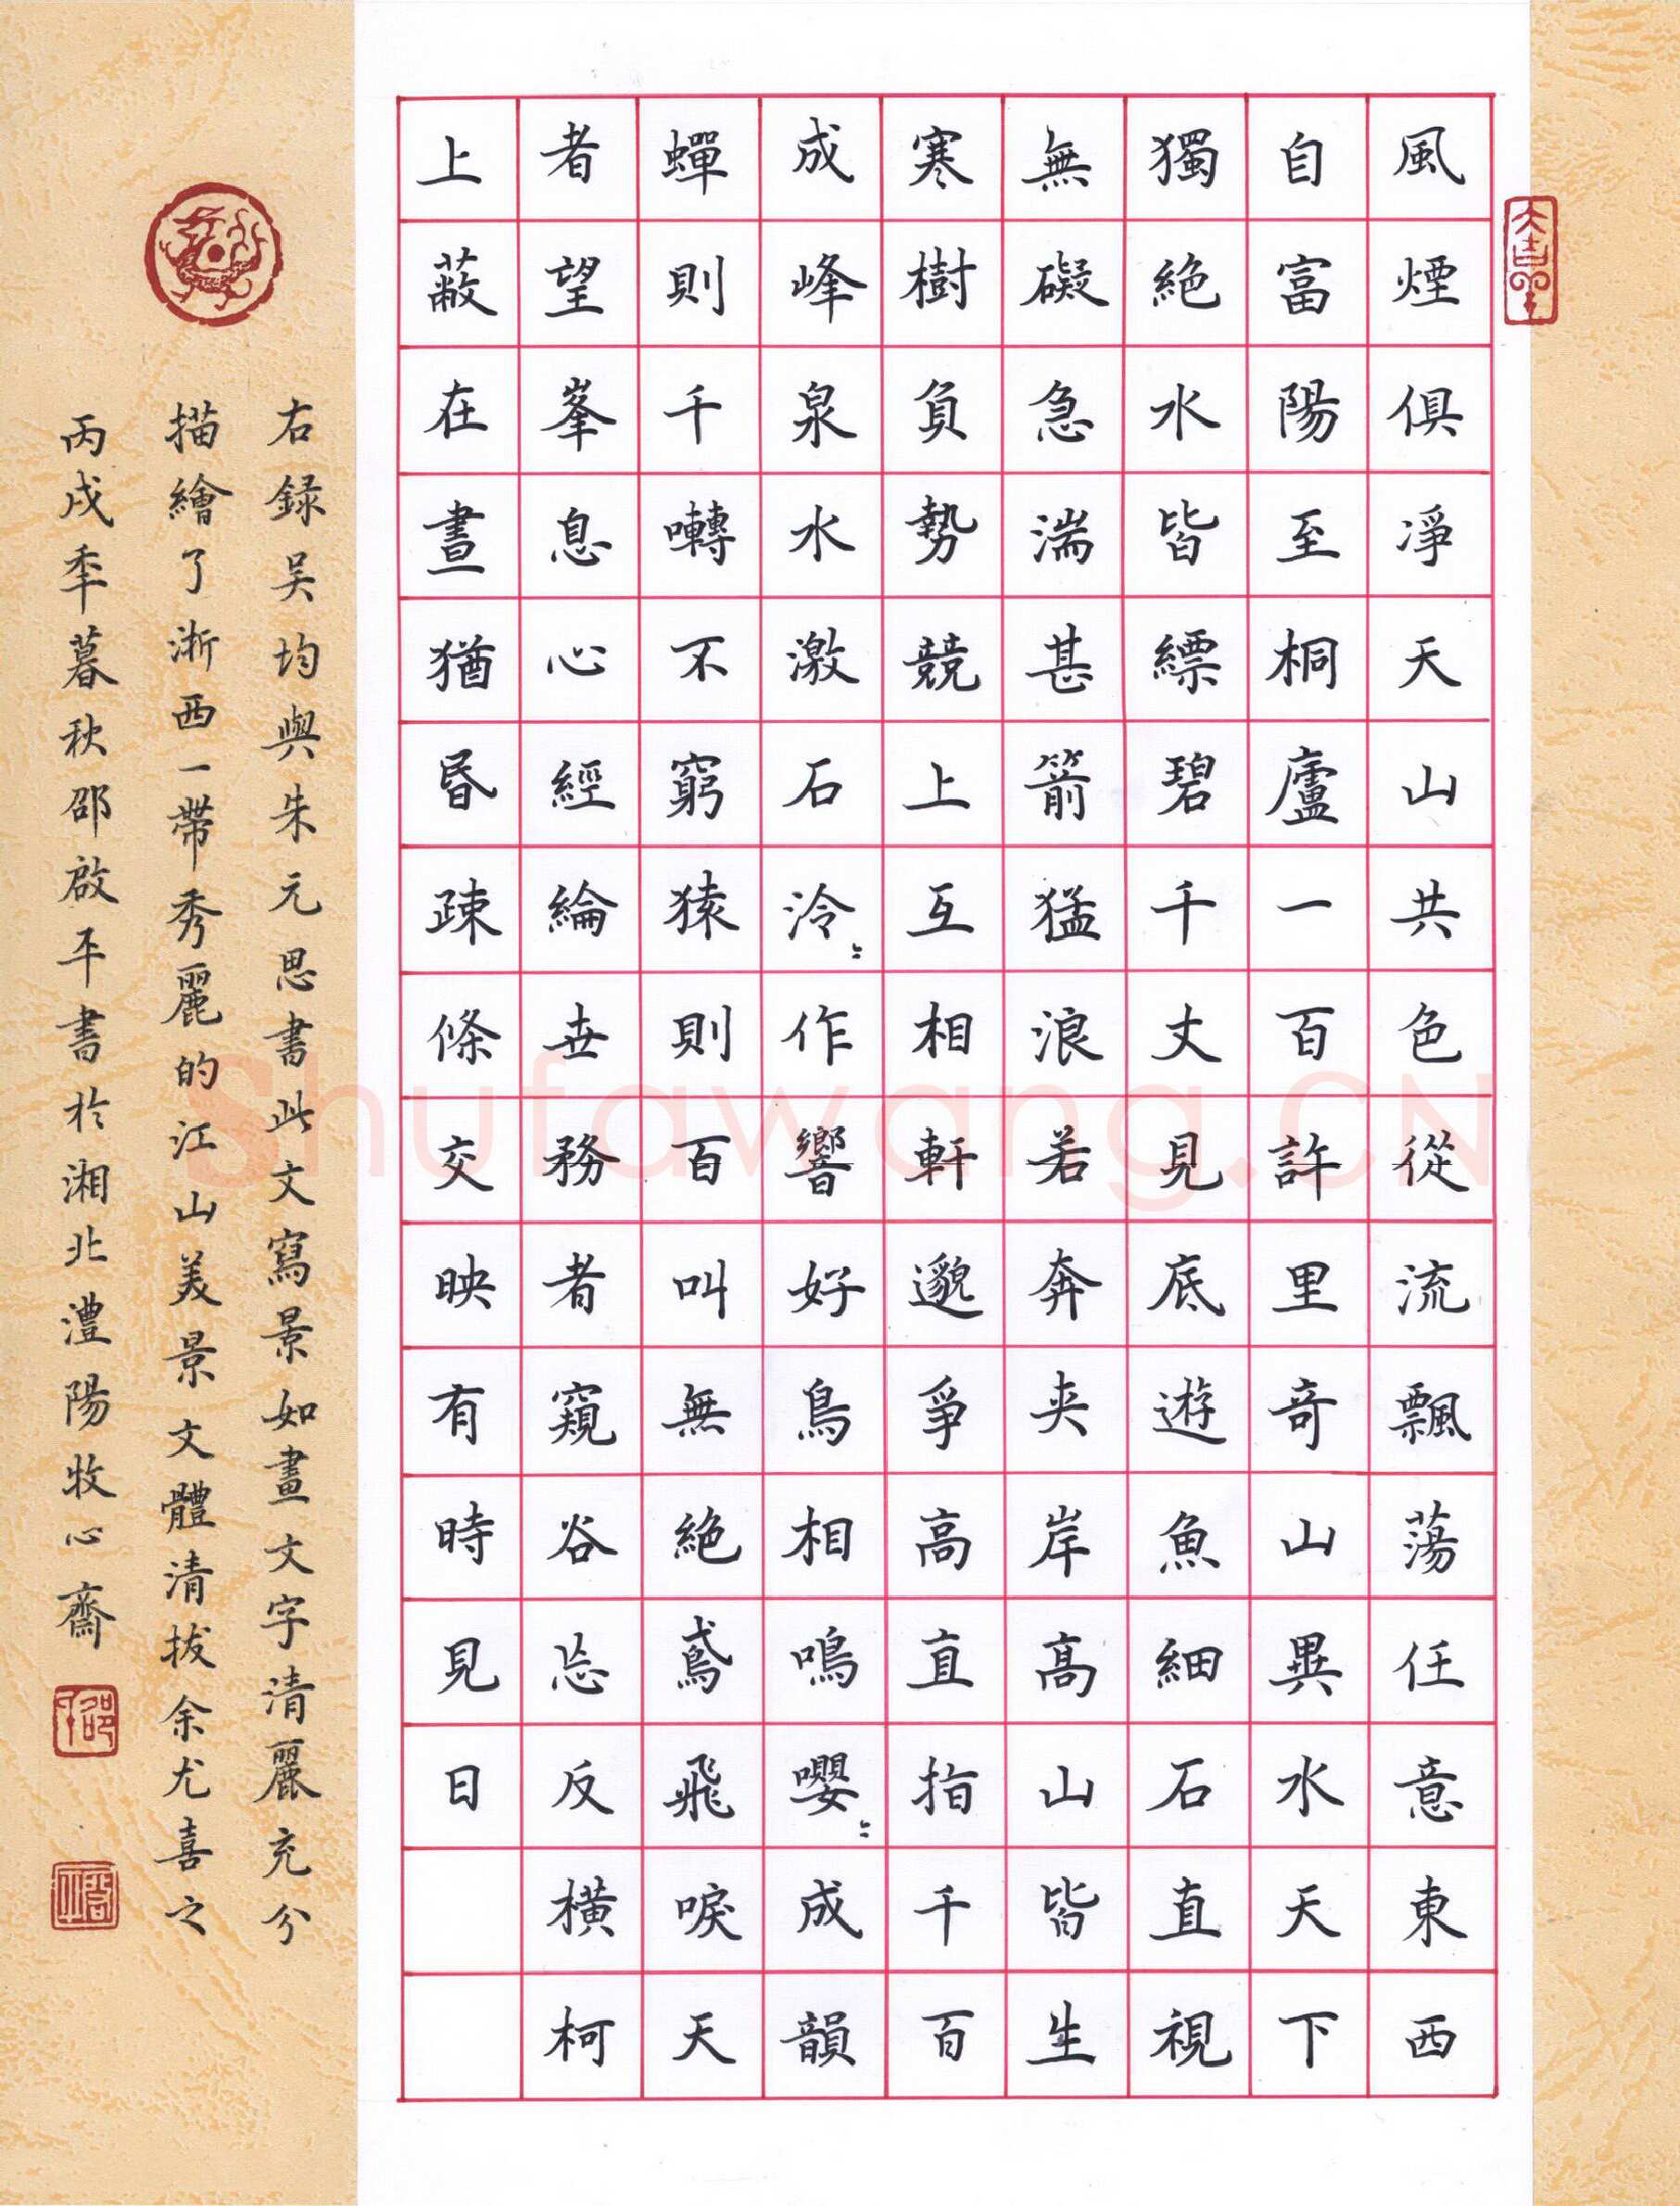 風煙俱凈天山共色從流飄蕩任意東西
自富陽至桐廬一百許里奇山異水天下
獨絕水皆縹碧千丈見底遊魚細石直視
無礙急湍甚箭猛浪若奔夾岸高山皆生
寒樹負勢競上互相軒邈爭高直指千百
成峰泉水激石泠〻作響好鳥相鳴嚶〻成韻
蟬則千囀不窮猿則百叫無絕鳶飛唳天
者望峯息心經綸世務者窺谷忘反橫柯
上蔽在晝猶昏疎條交映有時見日
右録吴均與朱元思書此文寫景如畫文字清麗充分
描繪了浙西一帶秀麗的江山美景文體清拔余尤喜之
丙戌季暮秋邵啟平書於湘北澧陽牧心齋
Shufawang.CN